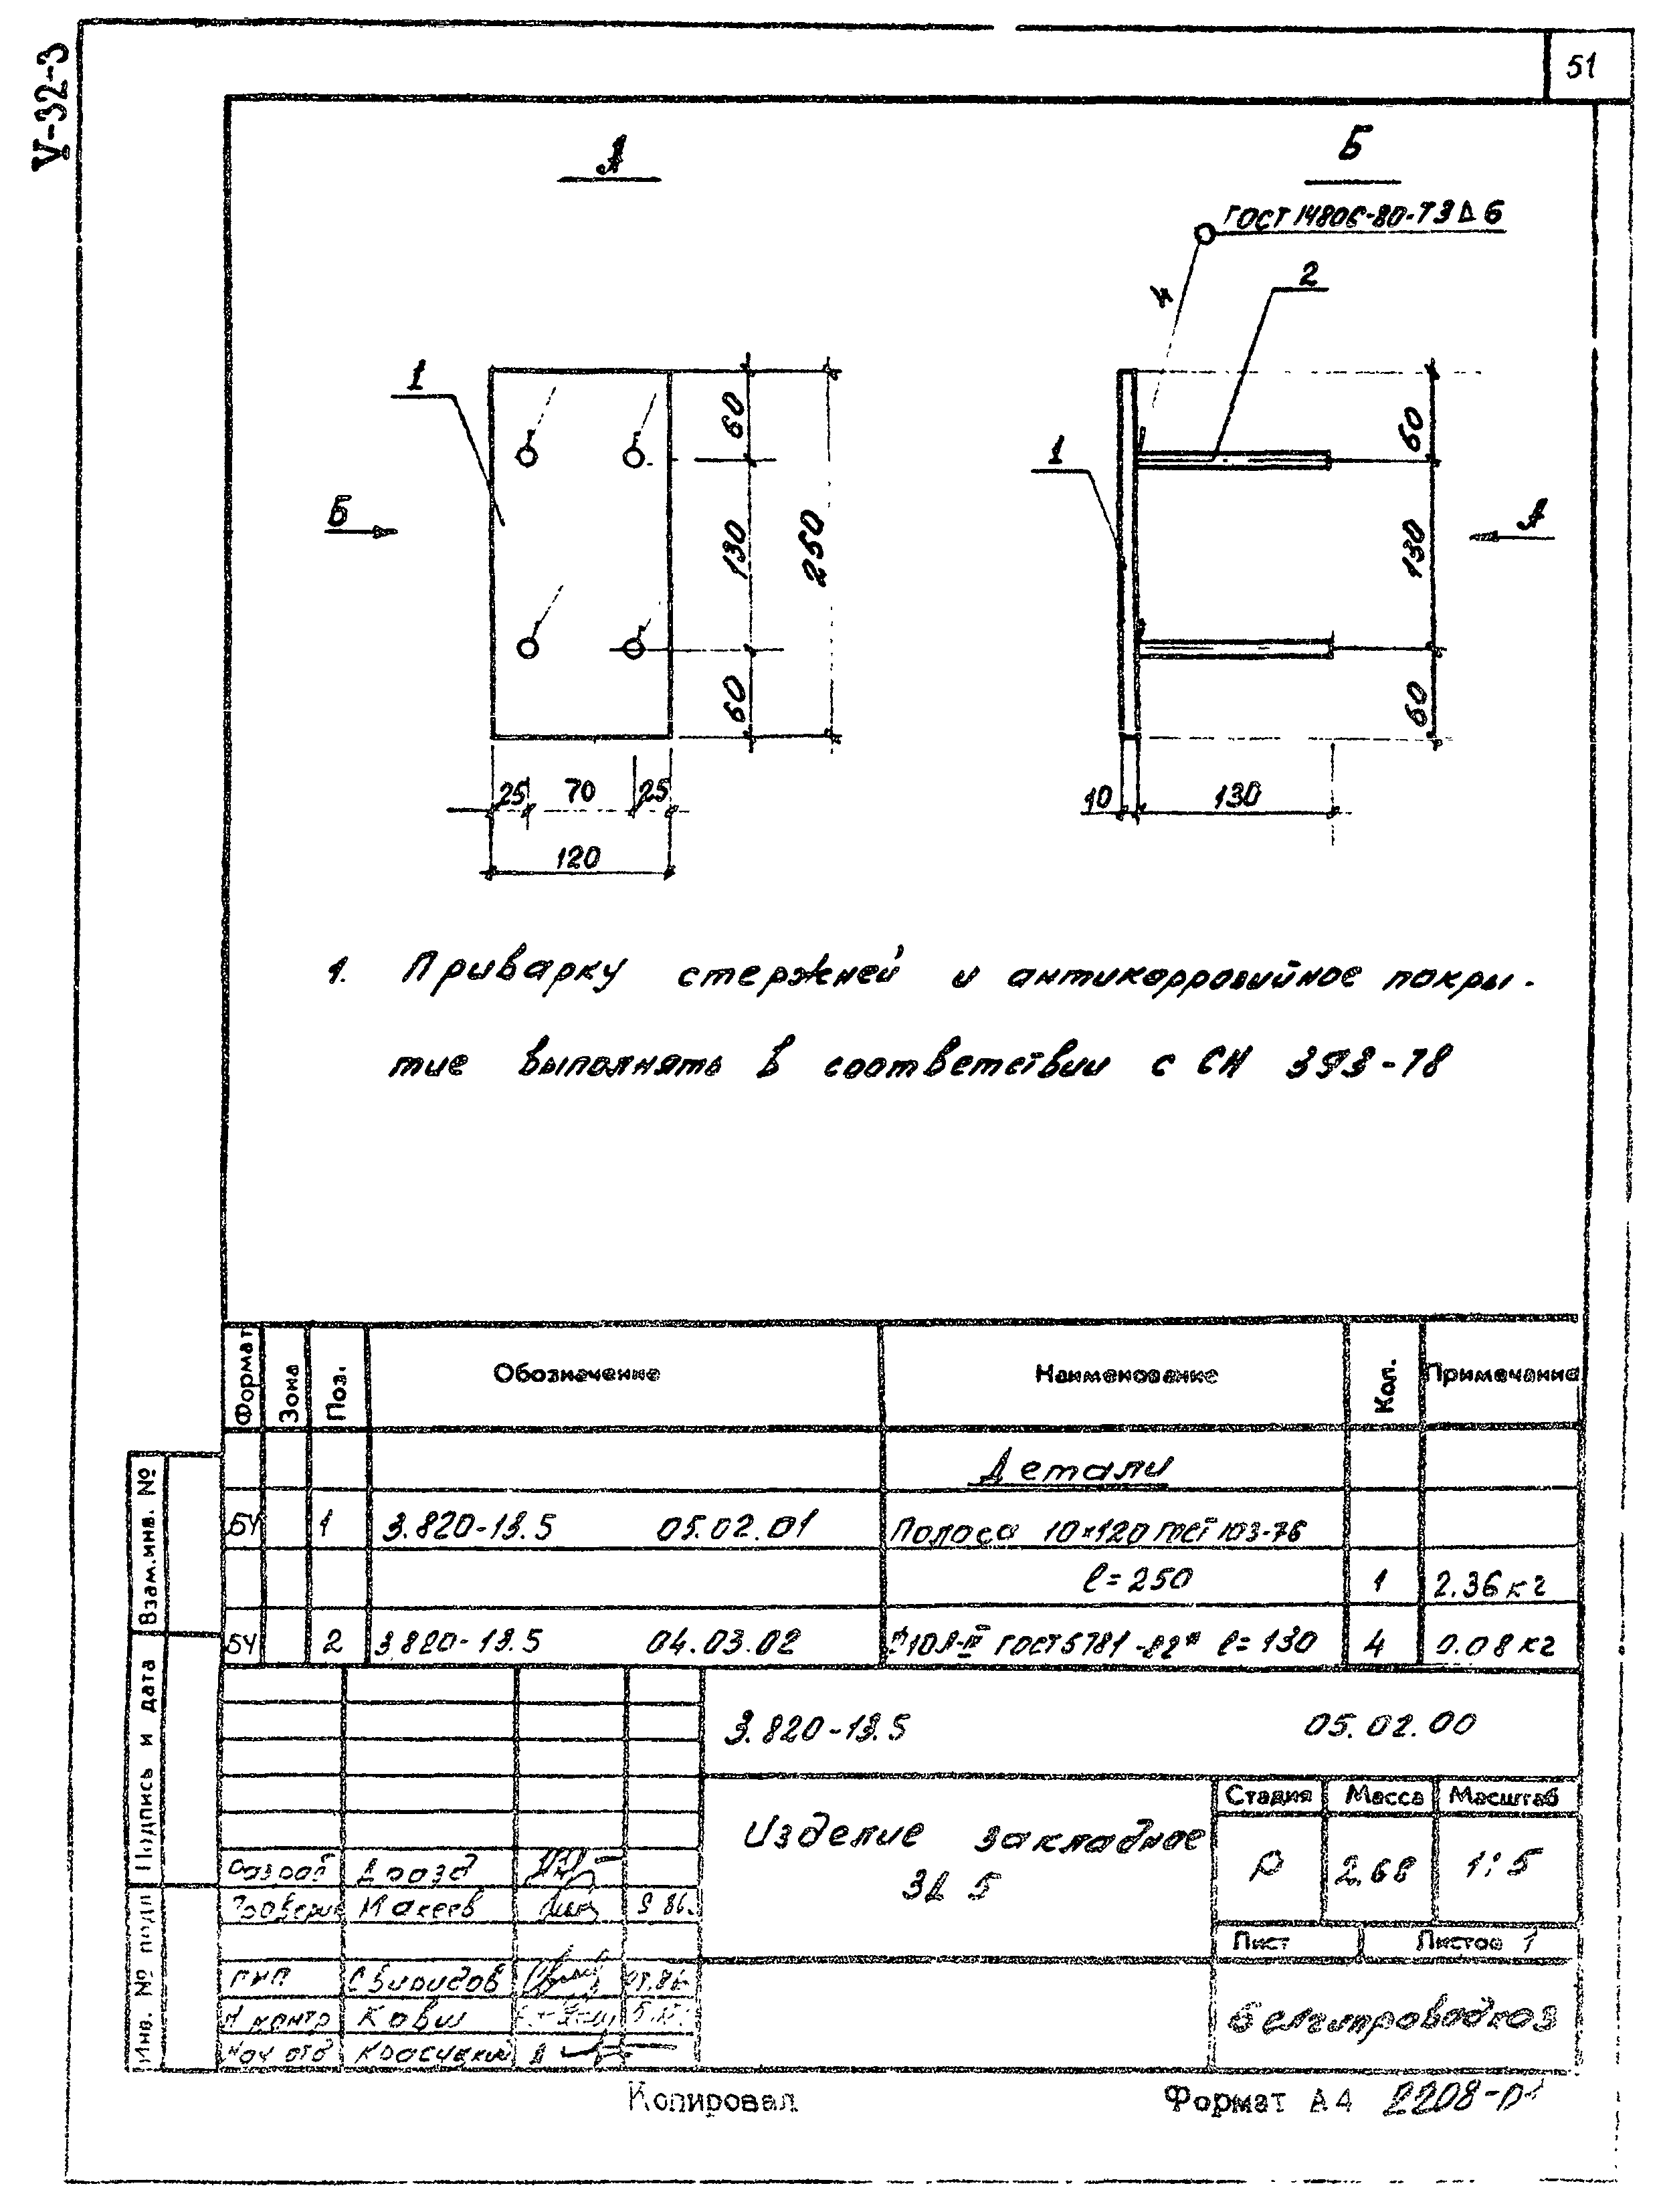 V-32-3
51
А
Б
ГОСТ 14806-80-Т3 Δ 6
4
2
1
60
130
60
250
Б
25 70 25
120
1
60
130
60
А
10 130
1. Приварку стержней и антикоррозийное покры-
тие выполнять в соответствии с СН 393-78
Формат Зона Поз. Обозначение Наименование Кол. Примечание
Детали
БЧ 1 3.820-13.5 05.02.01 Полоса 10×120 ГОСТ 103-76
ℓ=250 1 2.36 кг
БЧ 2 3.820-13.5 04.03.02 10А-III ГОСТ 5781-82* ℓ=130 4 0.08 кг
3.820-13.5 05.02.00
Изделие закладное
5
Стадия Масса Масштаб
Р 2.68 1:5
Лист Листов 1
Белгипроводхоз
Разраб Дрозд
Проверил Макеев 9 86.
ГИП Свиридов
Н контр Ковш
Нач отд
Взам.инв. №
Подпись и дата
Инв. № подл
Копировал
Формат А4 2208-01